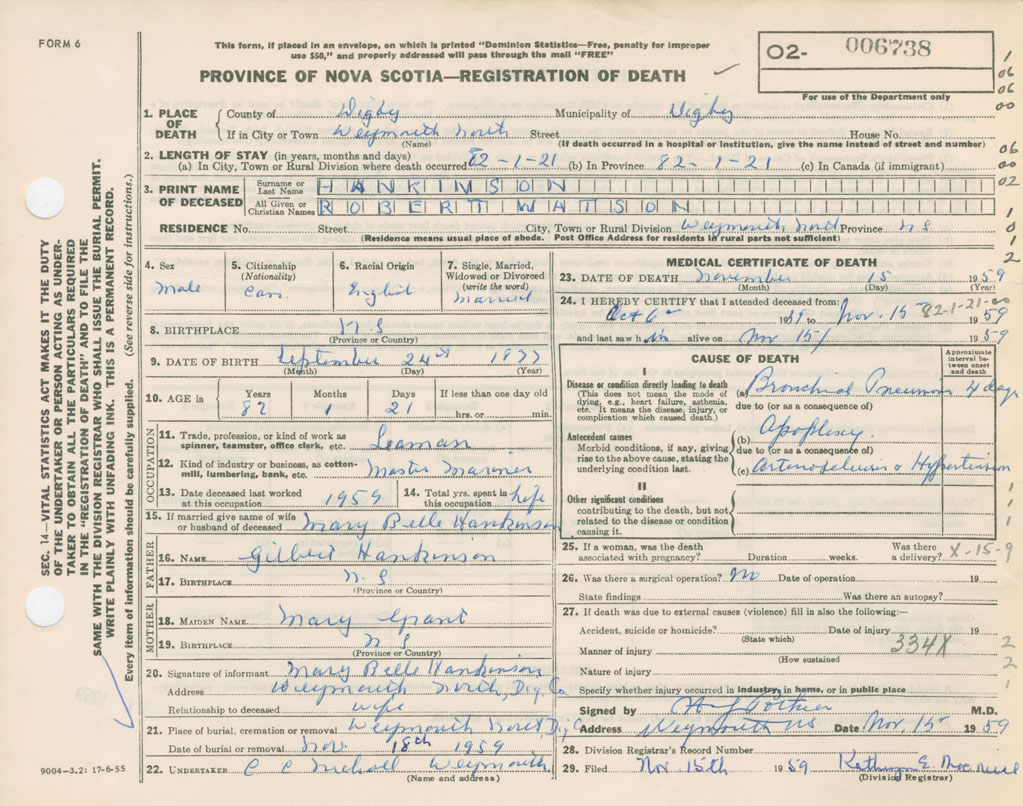 FORM 6
This form, if placed in an envelope, on which is printed "Dominion Statistics—Free, penalty for improper
use $50," and properly addressed will pass through the mail "FREE"
PROVINCE OF NOVA SCOTIA—REGISTRATION OF DEATH
02- 006738
For use of the Department only
1
06
06
00
06
00
02
1
0
1
2
SEC. 14—VITAL STATISTICS ACT MAKES IT THE DUTY
OF THE UNDERTAKER OR PERSON ACTING AS UNDER-
TAKER TO OBTAIN ALL THE PARTICULARS REQUIRED
IN THE "REGISTRATION OF DEATH" AND TO FILE THE
SAME WITH THE DIVISION REGISTRAR WHO SHALL ISSUE THE BURIAL PERMIT.
WRITE PLAINLY WITH UNFADING INK. THIS IS A PERMANENT RECORD.
Every item of information should be carefully supplied. (See reverse side for instructions.)
1. PLACE OF DEATH
County of Digby Municipality of Digby
If in City or Town Weymouth North Street House No.
(Name) (If death occurred in a hospital or institution, give the name instead of street and number)
2. LENGTH OF STAY (in years, months and days)
(a) In City, Town or Rural Division where death occurred 82-1-21 (b) In Province 82-1-21 (c) In Canada (if immigrant)
3. PRINT NAME OF DECEASED
Surname or Last Name HANKINSON
All Given or Christian Names ROBERT WATSON
RESIDENCE No. Street City, Town or Rural Division Weymouth North Province N S
(Residence means usual place of abode. Post Office Address for residents in rural parts not sufficient)
4. Sex Male
5. Citizenship (Nationality) Can.
6. Racial Origin English
7. Single, Married, Widowed or Divorced (write the word) Married
8. BIRTHPLACE N. S
(Province or Country)
9. DATE OF BIRTH September 24 1877
(Month) (Day) (Year)
10. AGE in Years 82 Months 1 Days 21 If less than one day old hrs. or min.
OCCUPATION
11. Trade, profession, or kind of work as spinner, teamster, office clerk, etc. Seaman
12. Kind of industry or business, as cotton-mill, lumbering, bank, etc. Master Mariner
13. Date deceased last worked at this occupation 1959
14. Total yrs. spent in this occupation life
15. If married give name of wife or husband of deceased Mary Belle Hankinson
FATHER
16. NAME Gilbert Hankinson
17. BIRTHPLACE N. S
(Province or Country)
MOTHER
18. MAIDEN NAME Mary Grant
19. BIRTHPLACE N S
(Province or Country)
20. Signature of informant Mary Belle Hankinson
Address Weymouth North, Dig. Co
Relationship to deceased wife
21. Place of burial, cremation or removal Weymouth North, Dig Co
Date of burial or removal Nov. 18th 1959
22. UNDERTAKER C C Nicholl Weymouth
(Name and address)
9004—3.2: 17-6-55
MEDICAL CERTIFICATE OF DEATH
23. DATE OF DEATH November 15 1959
(Month) (Day) (Year)
24. I HEREBY CERTIFY that I attended deceased from:
Oct 6 1959 to Nov. 15 1959
82-1-21-00
and last saw him alive on Nov 15 1959
CAUSE OF DEATH
Approximate interval between onset and death
I
Disease or condition directly leading to death
(This does not mean the mode of dying, e.g., heart failure, asthenia, etc. It means the disease, injury, or complication which caused death.)
(a) Bronchial Pneumonia 4 days
due to (or as a consequence of)
Antecedent causes
Morbid conditions, if any, giving rise to the above cause, stating the underlying condition last.
(b) Apoplexy.
due to (or as a consequence of)
(c) Arteriosclerosis & Hypertension
II
Other significant conditions
contributing to the death, but not related to the disease or condition causing it.
1
1
1
25. If a woman, was the death associated with pregnancy? Duration weeks. Was there a delivery? X-15-9
26. Was there a surgical operation? No Date of operation 19
State findings Was there an autopsy?
27. If death was due to external causes (violence) fill in also the following:—
Accident, suicide or homicide? Date of injury 19
(State which)
Manner of injury 334X
(How sustained
Nature of injury
Specify whether injury occurred in industry, in home, or in public place
2
2
1
Signed by M.D.
Address Weymouth NS Date Nov. 15 1959
28. Division Registrar's Record Number
29. Filed Nov. 15th 1959 Kathryn E.
(Division Registrar)